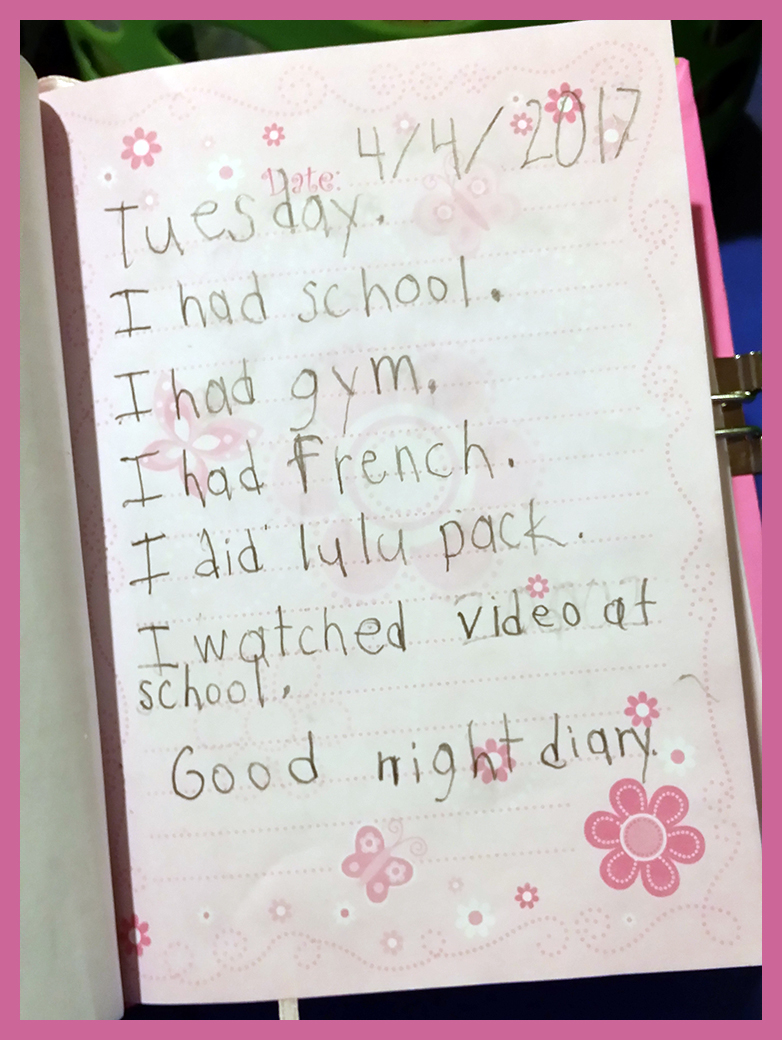 Date: 4/4/2017
Tuesday.
I had school.
I had gym.
I had French.
I did lulu pack.
I watched video at
school.
Good night diary.